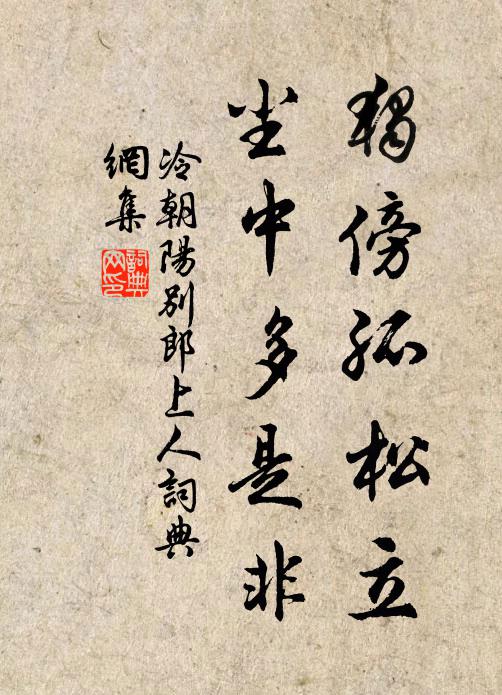 独傍孤松立
尘中多是非
冷朝陽别郎上人詞典
網集
詞典
网印